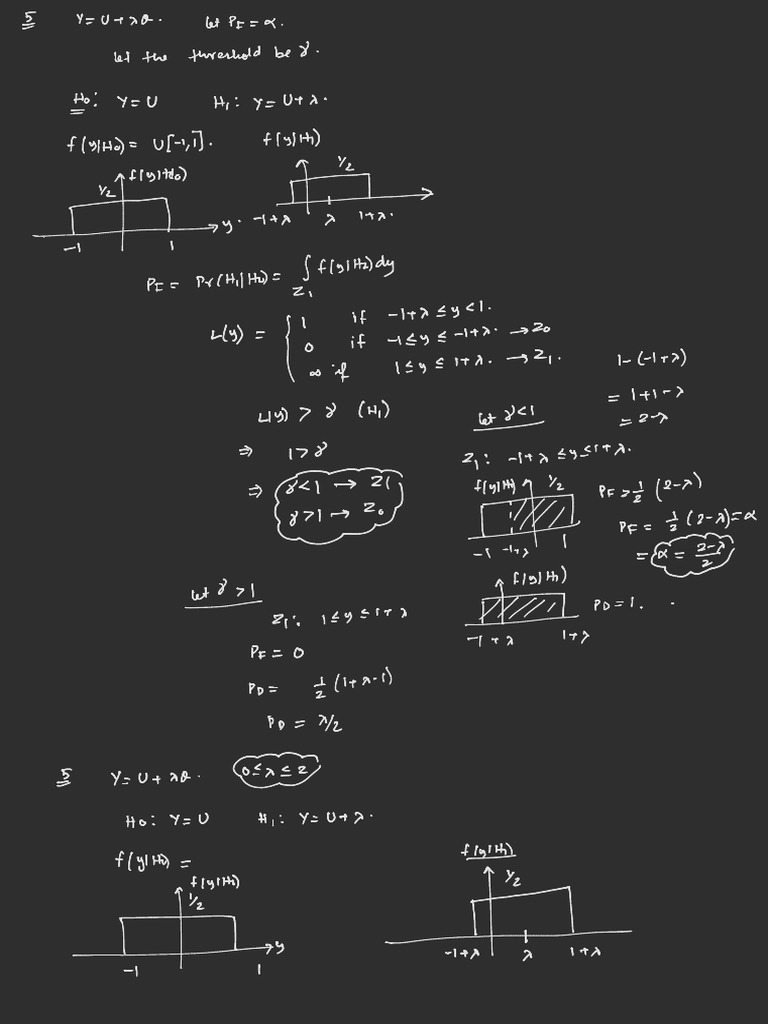 5 Y = U + λθ. Let P_F = α.
Let the threshold be γ.
H₀: Y = U H₁: Y = U + λ.
f(y|H₀) = U[-1,1]. f(y|H₁)
f(y|H₀) 1/2
1/2
-1 1 y. -1+λ λ 1+λ.
P_F = Pr(H₁|H₀) = ∫_{Z₁} f(y|H₀) dy
L(y) = { 1 if -1+λ ≤ y < 1.
0 if -1 ≤ y ≤ -1+λ. → Z₀
∞ if 1 ≤ y ≤ 1+λ. → Z₁.
1-(-1+λ)
= 1+1-λ
= 2-λ
L(y) > γ (H₁)
⇒ 1 > γ
⇒ γ < 1 → Z₁
γ > 1 → Z₀
Let γ < 1
Z₁: -1+λ ≤ y ≤ 1+λ.
f(y|H₀) 1/2
-1 -1+λ 1
P_F = 1/2 (2-λ)
P_F = 1/2 (2-λ) = α
= α = (2-λ)/2
f(y|H₁)
-1+λ 1+λ
P_D = 1.
Let γ > 1
Z₁: 1 ≤ y ≤ 1+λ
P_F = 0
P_D = 1/2 (1+λ-1)
P_D = λ/2
5 Y = U + λθ. 0 ≤ λ ≤ 2
H₀: Y = U H₁: Y = U + λ.
f(y|H₀) =
f(y|H₀)
1/2
-1 1 y
f(y|H₁)
1/2
-1+λ λ 1+λ